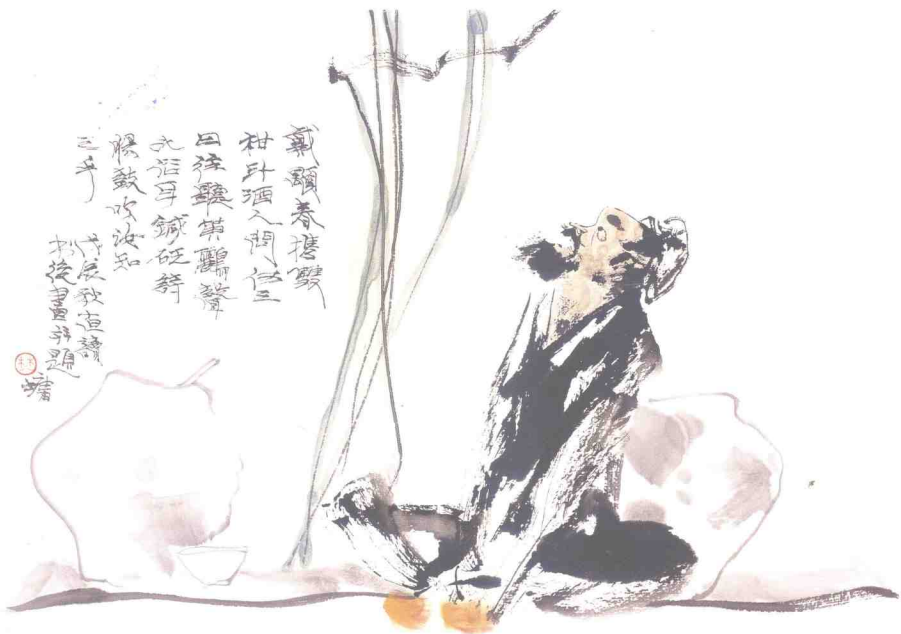 戴顒春携雙
柑斗酒人問何之
曰往聽黃鸝聲
此俗耳鍼砭詩
腸鼓吹汝知
之乎
戊辰秋
畫並題